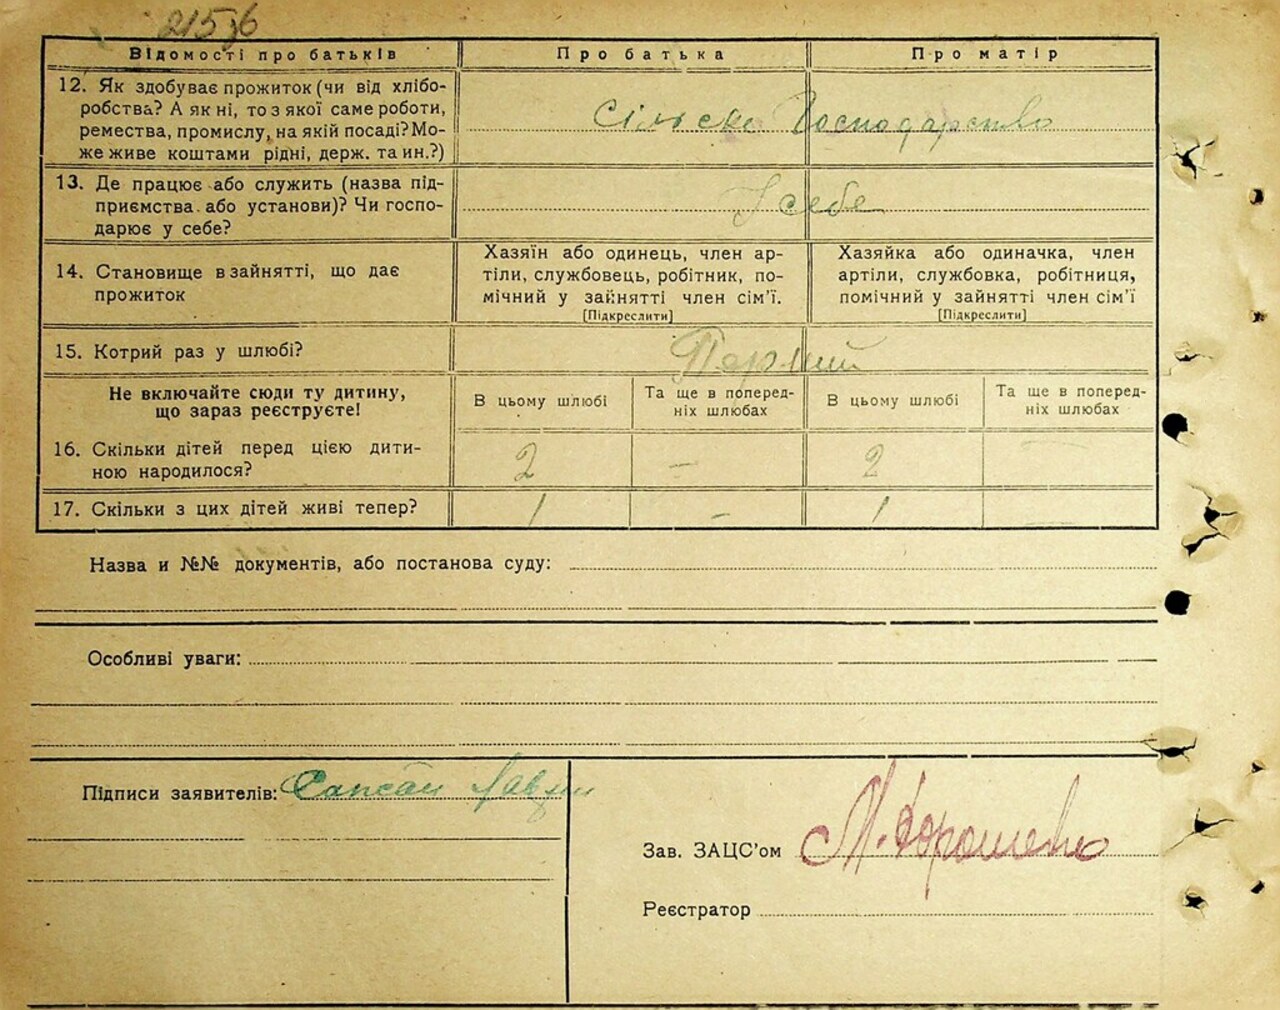 21536
Відомості про батьків
Про батька
Про матір
12. Як здобуває прожиток (чи від хлібо-
робства? А як ні, то з якої саме роботи,
ремества, промислу, на якій посаді? Мо-
же живе коштами рідні, держ. та ин.?)
Сільське Господарство
13. Де працює або служить (назва під-
приємства або установи)? Чи госпо-
дарює у себе?
У себе
14. Становище в зайнятті, що дає
прожиток
Хазяїн або одинець, член ар-
тіли, службовець, робітник, по-
мічний у зайнятті член сім’ї.
[Підкреслити]
Хазяйка або одиначка, член
артіли, службовка, робітниця,
помічний у зайнятті член сім’ї
[Підкреслити]
15. Котрий раз у шлюбі?
Перший
Не включайте сюди ту дитину,
що зараз реєструєте!
В цьому шлюбі
Та ще в поперед-
ніх шлюбах
В цьому шлюбі
Та ще в поперед-
ніх шлюбах
16. Скільки дітей перед цією дити-
ною народилося?
2 – 2 –
17. Скільки з цих дітей живі тепер?
1 – 1 –
Назва и №№ документів, або постанова суду:
Особливі уваги:
Підписи заявителів:
Зав. ЗАЦС’ом М. Дорошенко
Реєстратор